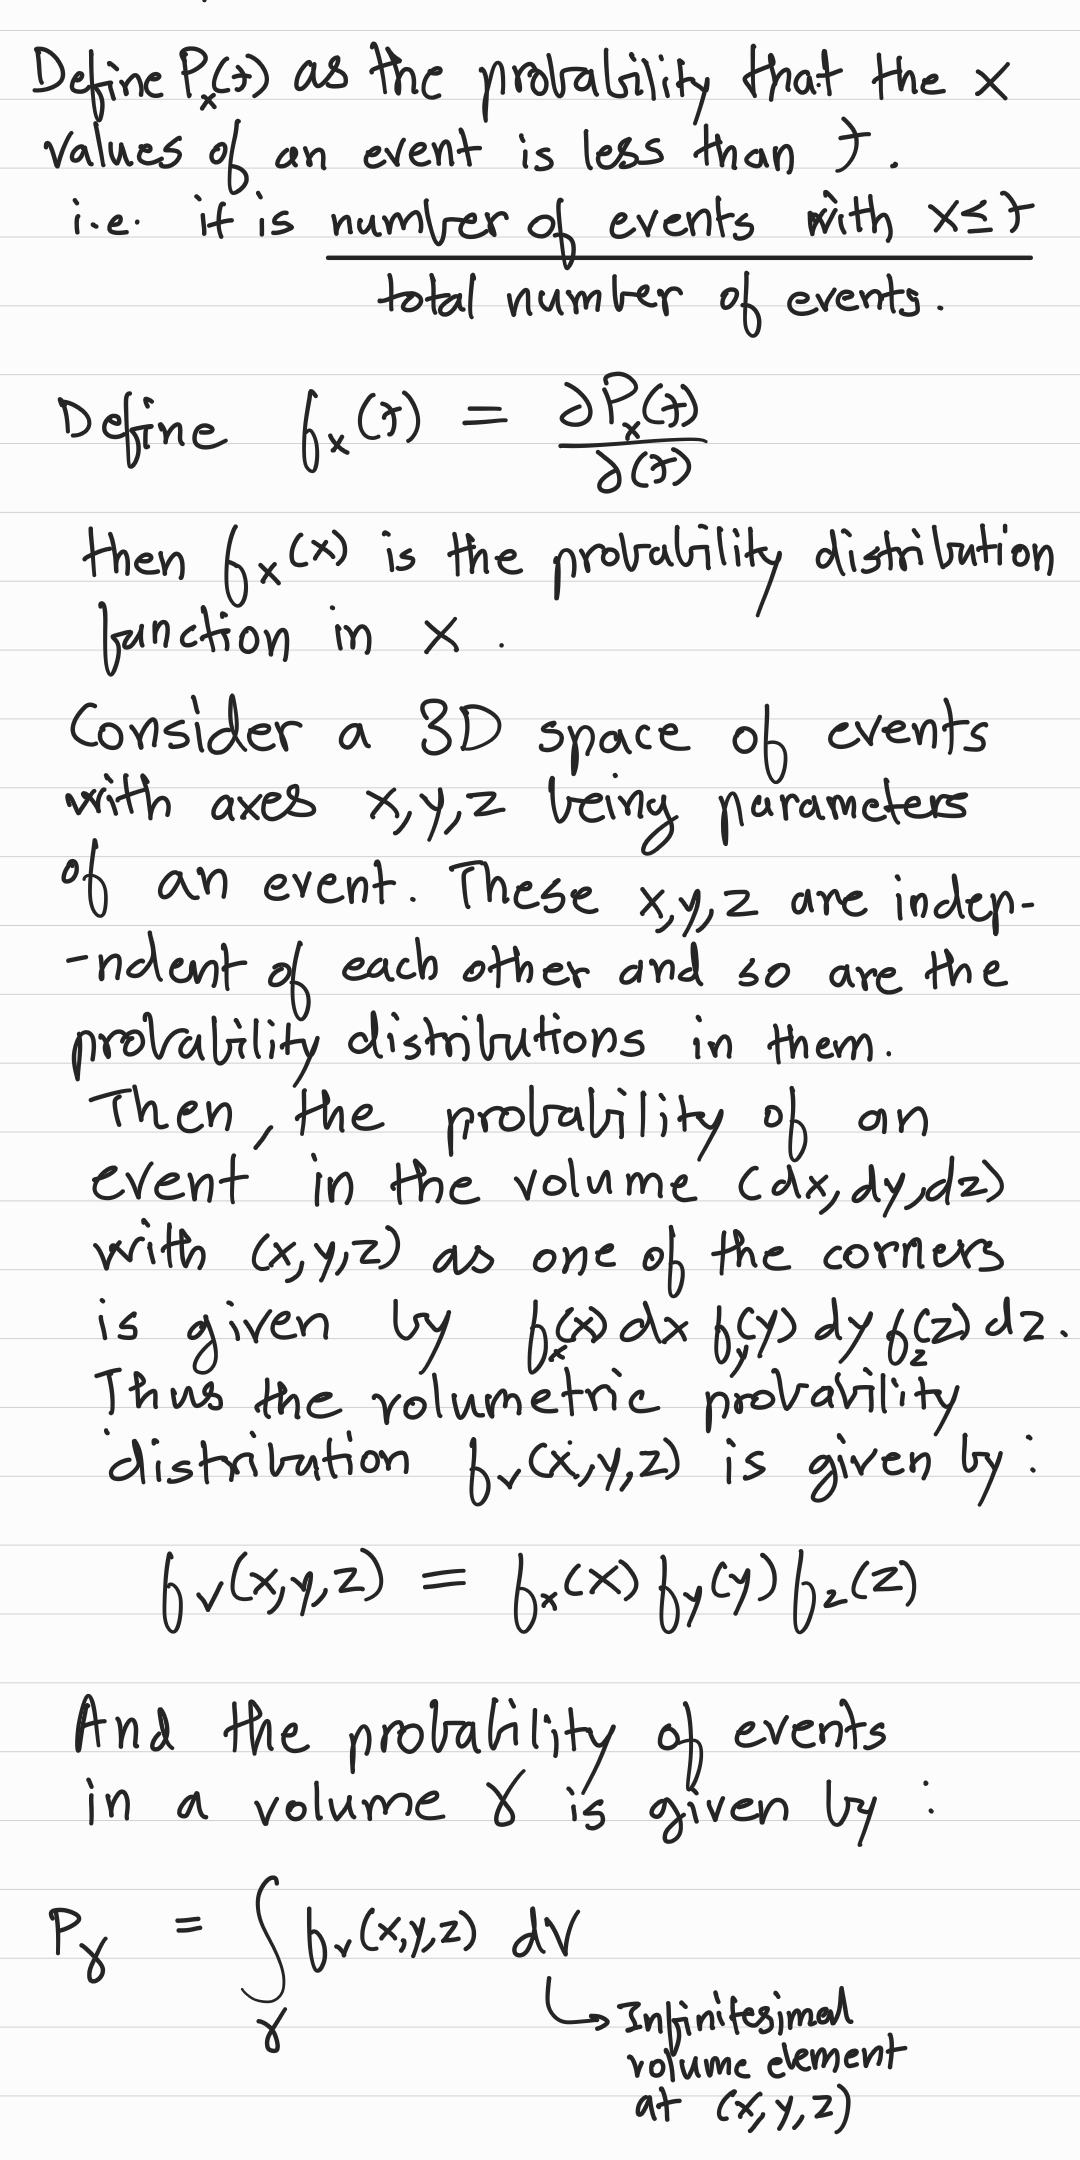 Define P_x(t) as the probability that the x
values of an event is less than t.
i.e. it is number of events with x≤t
total number of events.
Define f_x(t) = ∂P_x(t)
∂(t)
then f_x(x) is the probability distribution
function in x.
Consider a 3D space of events
with axes x,y,z being parameters
of an event. These x,y,z are indep-
-ndent of each other and so are the
probability distributions in them.
Then, the probability of an
event in the volume (dx,dy,dz)
with (x,y,z) as one of the corners
is given by f_x(x) dx f_y(y) dy f_z(z) dz.
Thus the volumetric probability
distribution f_v(x,y,z) is given by:
f_v(x,y,z) = f_x(x) f_y(y) f_z(z)
And the probability of events
in a volume γ is given by:
P_γ = ∫_γ f_v(x,y,z) dV
Infinitesimal
volume element
at (x,y,z)